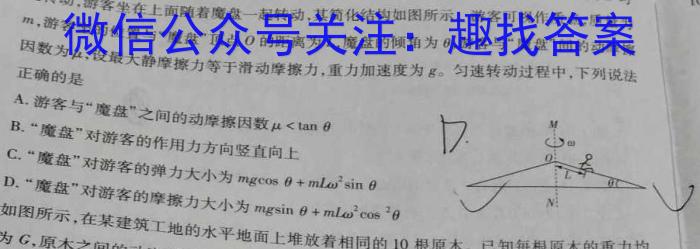 转动,游客坐在上面随着魔盘一起转动,其简化结构如图所示
m,游客
微信公众号关注:趣找答案
因数为μ,设最大静摩擦力等于滑动摩擦力,重力加速度为g。匀速转动过程中,下列说法
正确的是
A.游客与“魔盘”之间的动摩擦因数μ<tan θ
B.“魔盘”对游客的作用力方向竖直向上
C.“魔盘”对游客的弹力大小为mgcos θ+mLω²sin θ
D.“魔盘”对游客的摩擦力大小为mgsin θ+mLω²cos ²θ
D.
M
ω
O
L
θ
N
如图所示,在某建筑工地的水平地面上堆放着相同的10根原木,已知每根原木的重力均
为G,原木之间的动